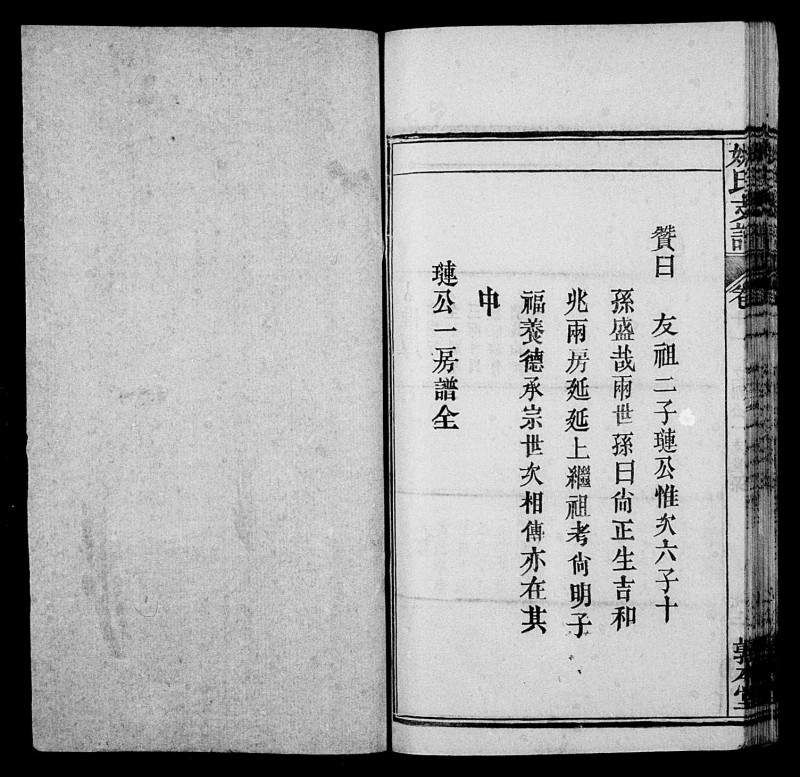 姚氏支譜
卷
贊曰　友祖二子璉公惟次六子十
孫盛哉兩世孫曰尙正生吉和
兆兩房延延上繼祖考尙明子
福養德承宗世次相傳亦在其
中
璉公一房譜全